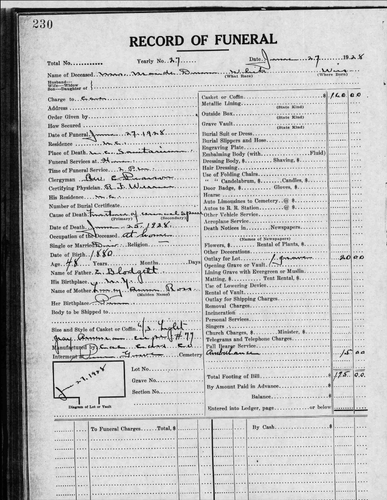 230
RECORD OF FUNERAL
Total No. Yearly No. 27 Date June 27 1928
Name of Deceased Mrs. Maude White Wis
(What Race) (Where Born)
Husband—
Wife—Widow
Son—Daughter of
Charge to
Address
Order Given by
How Secured
Date of Funeral June 27-1928
Residence N.C.
Place of Death N.C. Sanitarium
Funeral Services at Home
Time of Service 2 P.M.
Clergyman Rev. E.
Certifying Physician B.F.
His Residence N.C.
Number of Burial Certificate
Cause of Death Fracture of cervical
(Primary) (Secondary)
Date of Death June 25-1928
Occupation of the Deceased at home
Single or Married Religion
Date of Birth 1880
Age 48 Years Months Days
Name of Father E. Blodgett
His Birthplace N.Y.
Name of Mother Lucy Ann Ross
(Maiden Name)
Her Birthplace Penn
Body to be Shipped to
Size and Style of Casket or Coffin 6/3 Light
gray #77
Manufactured by
Interment at Cemetery
June 27-1928
Diagram of Lot or Vault
Lot No.
Grave No.
Section No.
Casket or Coffin $ 160 00
Metallic Lining
(State Kind)
Outside Box
(State Kind)
Grave Vault
(State Kind)
Burial Suit or Dress
Burial Slippers and Hose
Engraving Plate
Embalming Body (with Fluid)
Dressing Body, $ Shaving, $
Hair Dressing
Use of Folding Chairs
" " Candelabrum, $ Candles, $
Door Badge, $ Gloves, $
Hearse
Auto Limousines to Cemetery @ $
Autos to R. R. Station @ $
Other Vehicle Service
Aeroplane Service
Death Notices in Newspapers
(Names of Newspapers)
Flowers, $ Rental of Plants, $
Other Decorations
Outlay for Lot 20 00
Opening Grave or Vault
Lining Grave with Evergreen or Muslin
Tent Rental, $
Use of Lowering Device
Rental of Vault
Outlay for Shipping Charges
Removal Charges
Incineration
Personal Services
Singers
Church Charges, $ Minister, $
Telegrams and Telephone Charges
Pall Bearer Service
Ambulance 15 00
Total Footing of Bill $ 195 00
By Amount Paid in Advance $
Balance $
Entered into Ledger, page or below
To Funeral Charges Total $ By Cash $